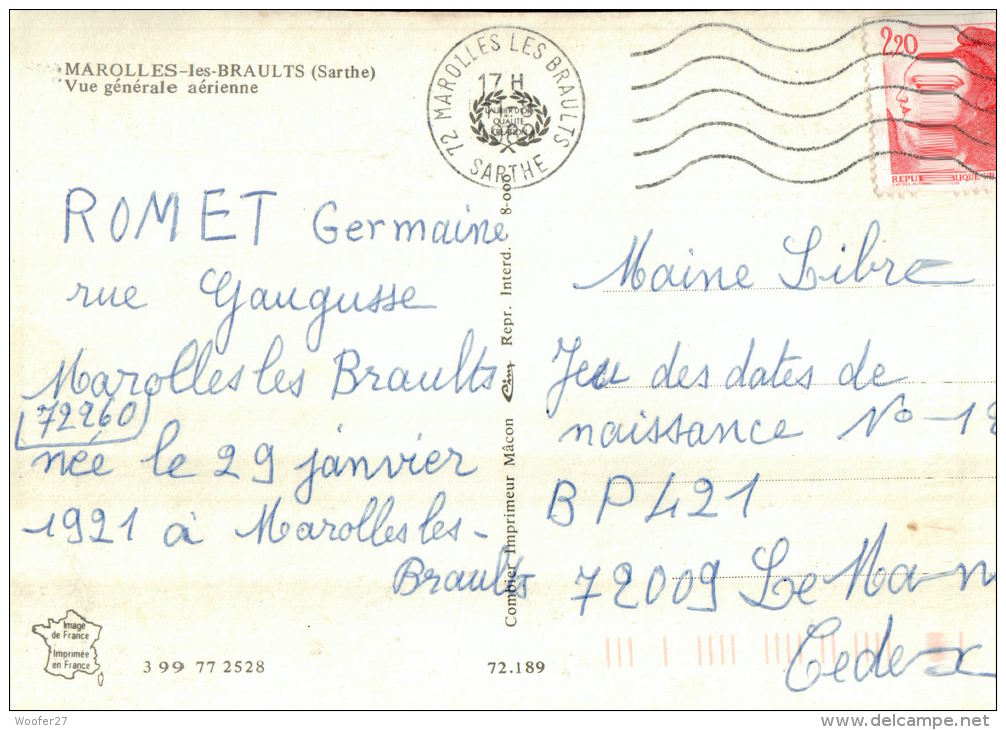 MAROLLES-les-BRAULTS (Sarthe)
Vue générale aérienne
72 MAROLLES LES BRAULTS
17 H
LAURIER D'OR
QUALITÉ
CRÉATION
SARTHE
2,20
ROMET Germaine
rue Gaugusse
Marolles les Braults
72260
née le 29 janvier
1921 à Marolles les-
Braults
Combier Imprimeur Mâcon Cim Repr. Interd. 8-000
Maine Libre
Jeu des dates de
naissance No-18
BP421
72009 Le Man
Cedex
Image
de France
Imprimée
en France
3 99 77 2528
72.189
Woofer27
www.delcampe.net